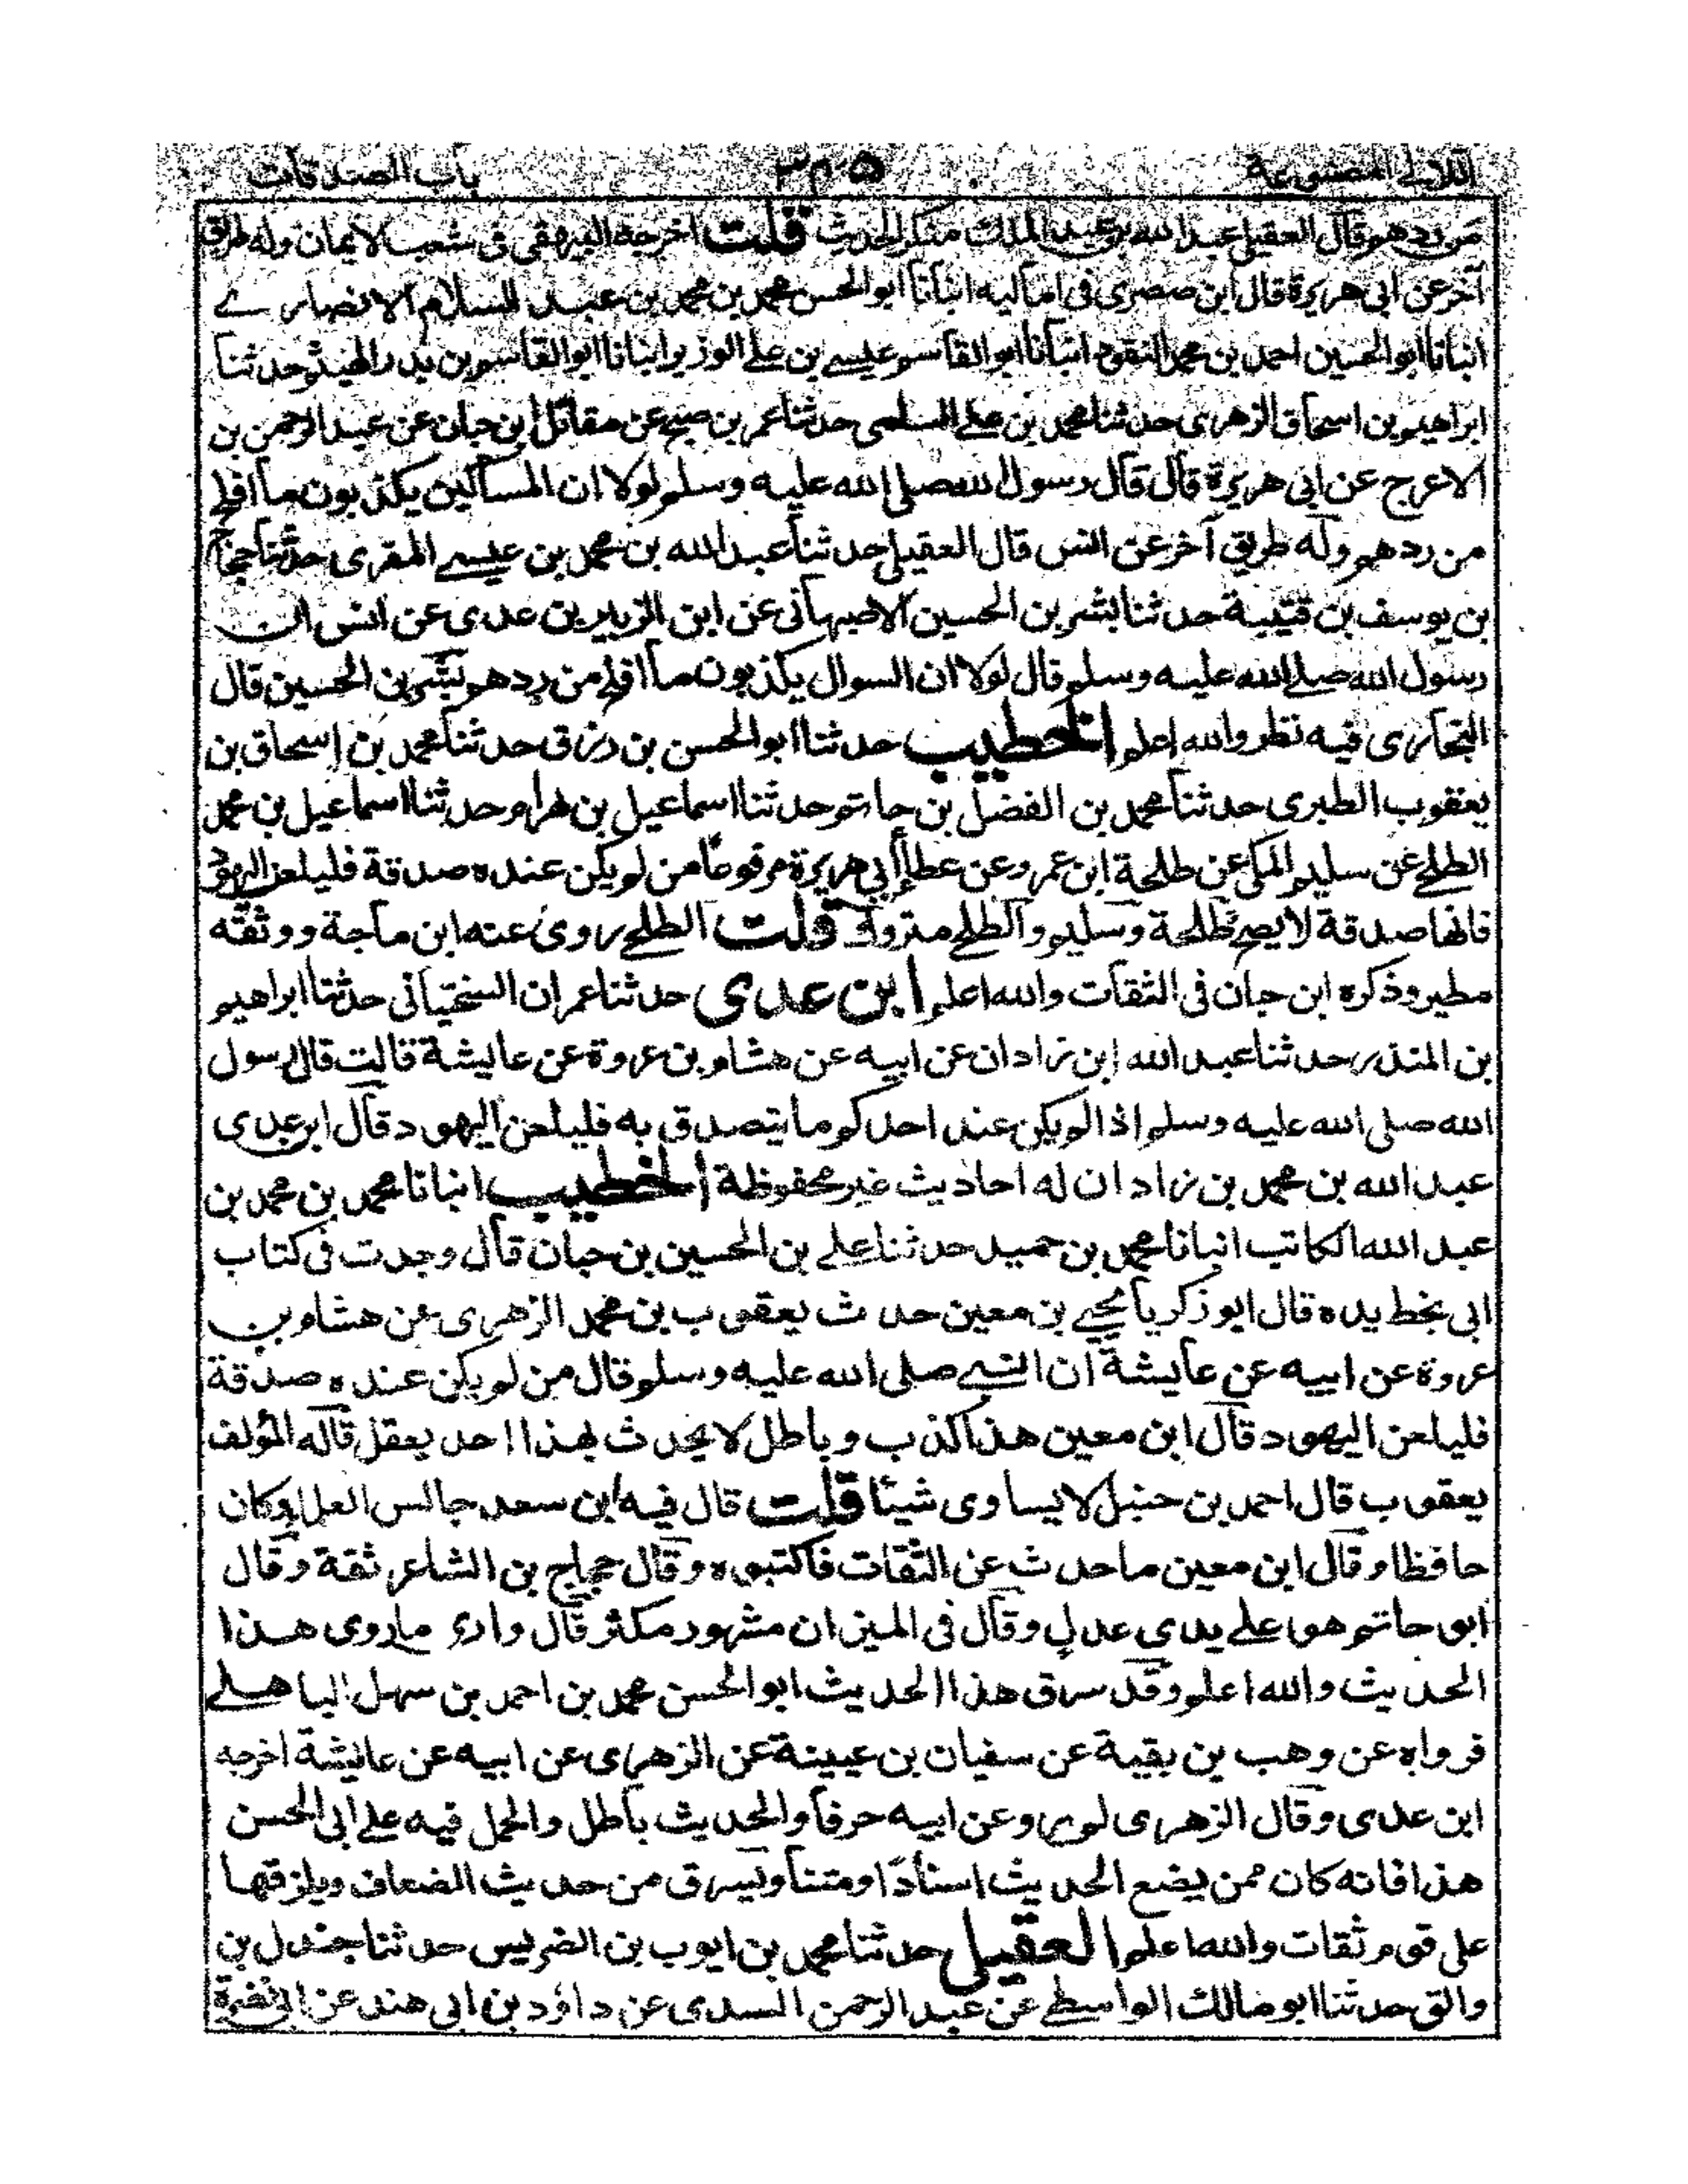 اللآلي المصنوعة ٣٠٥ باب الصدقات
من ردهم وقال العقيلي عبد الله بن عبد الملك منكر الحديث قلت اخرجه البيهقي في شعب الايمان وله طريق
آخر عن ابي هريرة قال ابن صصرى في اماليه انبأنا ابو الحسن محمد بن محمد بن عبد السلام الانصاري
انبانا ابو الحسين احمد بن محمد النقور انبأنا ابو القاسم عيسى بن علي الوزير انبانا ابو القاسم بن بدر الهيثم حدثنا
ابراهيم بن اسحاق الزهري حدثنا محمد بن علي السلمي حدثنا عمر بن صبح عن مقاتل ابن حيان عن عبد الرحمن بن
الاعرج عن ابي هريرة قال قال رسول الله صلى الله عليه وسلم لولا ان المساكين يكذبون ما افلح
من ردهم وله طريق آخر عن انس قال العقيلي حدثنا عبد الله بن محمد بن عيسى المقري حدثنا حجاج
بن يوسف بن قتيبة حدثنا بشر بن الحسين الاصبهاني عن ابن الزبير بن عدي عن انس ان
رسول الله صلى الله عليه وسلم قال لولا ان السوال يكذبون ما افلح من ردهم بشر بن الحسين قال
البخاري فيه نظر والله اعلم الخطيب حدثنا ابو الحسن بن رزق حدثنا محمد بن إسحاق بن
يعقوب الطبري حدثنا محمد بن الفضل بن حاتم حدثنا اسماعيل بن بهرام حدثنا اسماعيل بن محمد
الطلحي عن سليم المكي عن طلحة ابن عمرو عن عطا أبي هريرة مرفوعا من لم يكن عنده صدقة فليلعن اليهود
فانها صدقة لا يصح طلحة وسليم والطلحي متروك قلت الطلحي روى عنه ابن ماجة ووثقه
مطير وذكره ابن حبان في الثقات والله اعلم ابن عدي حدثنا عمران السختياني حدثنا ابراهيم
بن المنذر حدثنا عبد الله ابن زادان عن ابيه عن هشام بن عروة عن عايشة قالت قال رسول
الله صلى الله عليه وسلم اذا لم يكن عند احدكم ما يتصدق به فليلعن اليهود قال ابن عدي
عبد الله بن محمد بن زادان له احاديث غير محفوظة الخطيب انبانا محمد بن محمد بن
عبد الله الكاتب انبانا محمد بن حميد حدثنا علي بن الحسين بن حبان قال وجدت في كتاب
ابي بخط يده قال ابو زكريا يحيى بن معين حدث يعقوب بن محمد الزهري عن هشام بن
عروة عن ابيه عن عايشة ان النبي صلى الله عليه وسلم قال من لم يكن عنده صدقة
فليلعن اليهود قال ابن معين هذا كذب وباطل لا يحدث بهذا احد يعقل قاله المؤلف
يعقوب قال احمد بن حنبل لا يساوي شيئا قلت قال فيه ابن سعد جالس العلماء وكان
حافظا وقال ابن معين ما حدث عن الثقات فاكتبوه وقال حجاج بن الشاعر ثقة وقال
ابو حاتم هو على يدي عدل وقال في الميزان مشهور مكثر قال واره ما روى هذا
الحديث والله اعلم وقد سرق هذا الحديث ابو الحسن محمد بن احمد بن سهل الباهلي
فرواه عن وهب بن بقية عن سفيان بن عيينة عن الزهري عن ابيه عن عايشة اخرجه
ابن عدي وقال الزهري لم يرو عن ابيه حرفا والحديث باطل والحمل فيه على ابي الحسن
هذا فانه كان ممن يضع الحديث اسنادا ومتنا ويسرق من حديث الضعاف ويلزقها
على قوم ثقات والله اعلم العقيلي حدثنا محمد بن ايوب بن الضريس حدثنا جندل بن
والق حدثنا ابو مالك الواسطي عن عبد الرحمن السدي عن داؤد بن ابي هند عن ابي نضرة